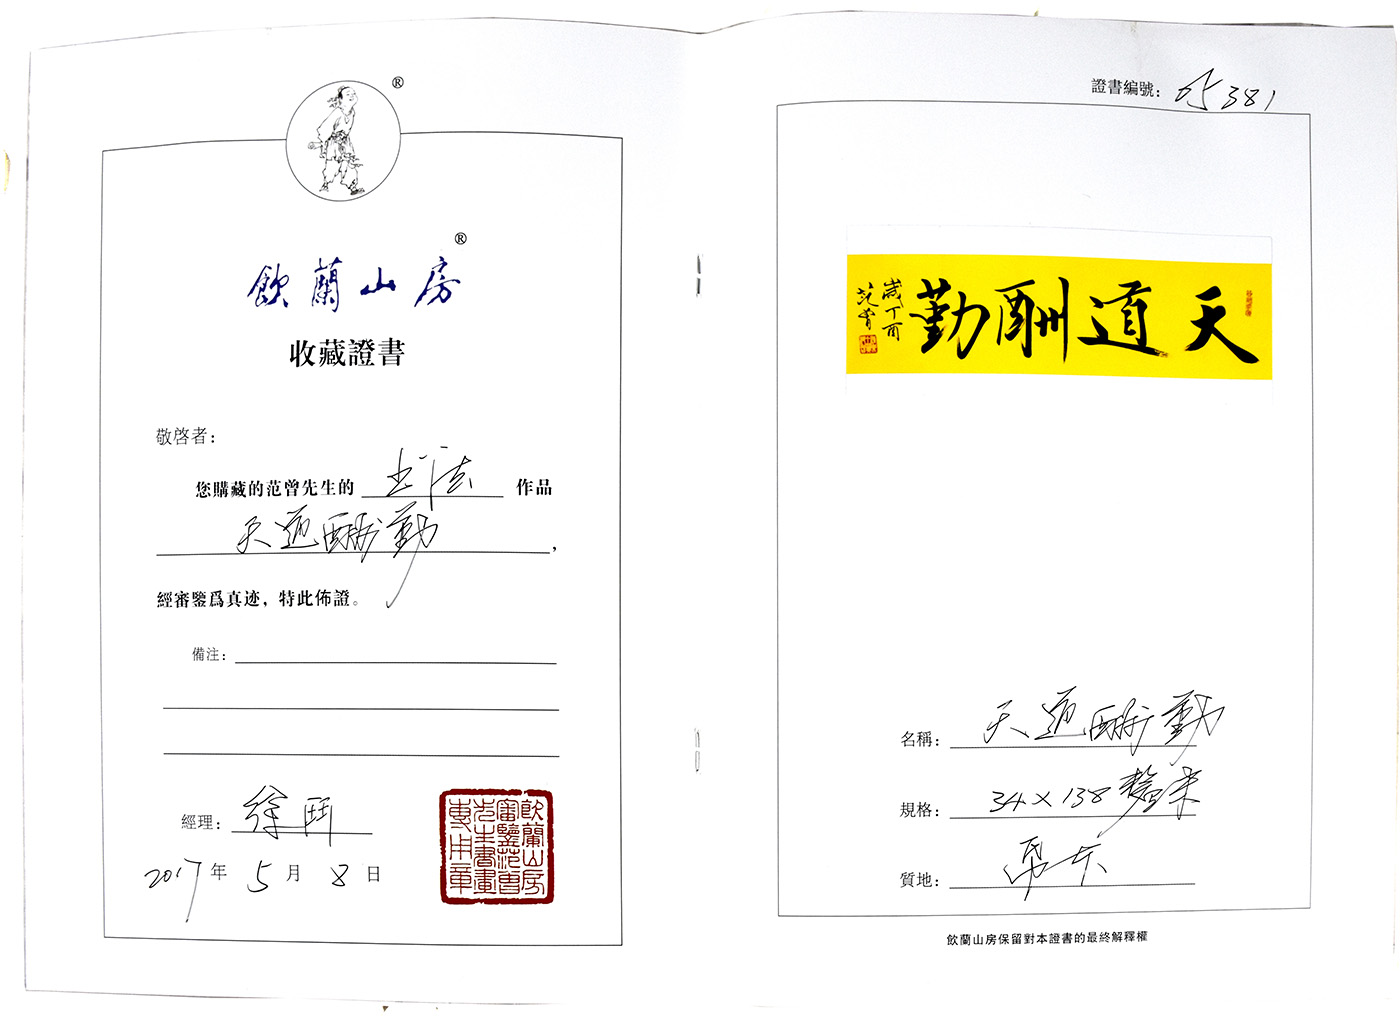 ®
飲蘭山房®
收藏證書
敬啓者：
您購藏的范曾先生的 书法 作品
天道酬勤，
經審鑒爲真迹，特此佈證。
備注：
經理：徐
2017年5月8日
飲蘭山房
審鑒范曾
先生書畫
專用章
證書編號：381
天道酬勤
歲丁酉
范曾
名稱：天道酬勤
規格：34×138 釐米
質地：
飲蘭山房保留對本證書的最終解釋權